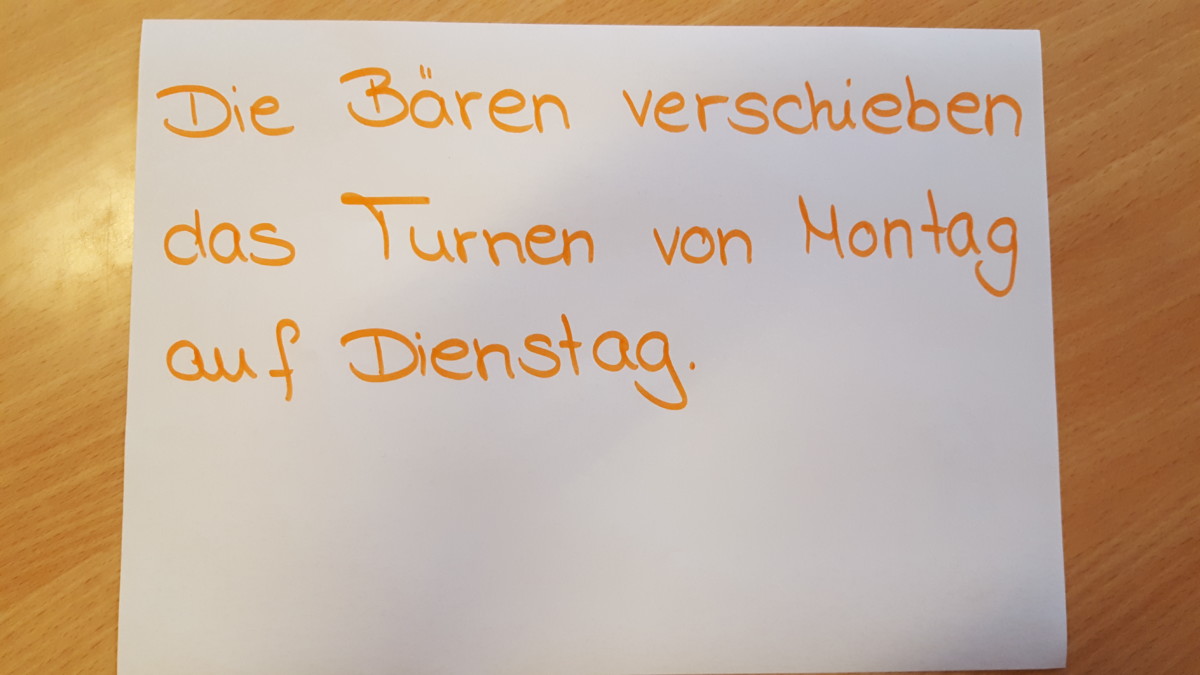 Die Bären verschieben
das Turnen von Montag
auf Dienstag.